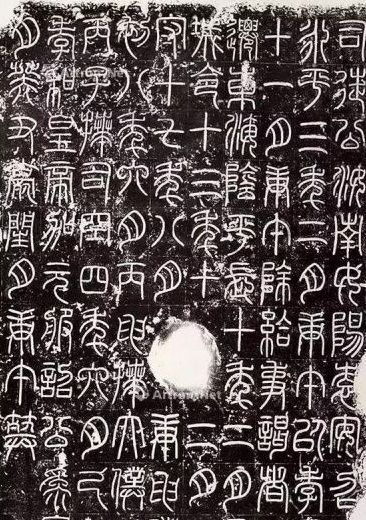 司徒公汝南女陽袁安召
永平三年二月庚午以孝
十一月庚午除給事謁者
遷東海陰平長十年二月
城令十三年十二月
守十七年八月庚申
初八年六月丙申拜太僕
丙子拜司空四年六月己
孝和皇帝加元服詔公為
月癸丑薨閏月庚午葬